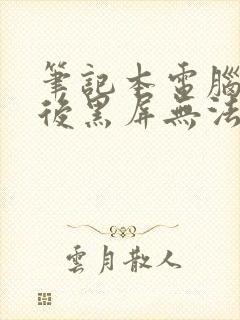 筆記本電腦
後黑屏無法
雲月散人